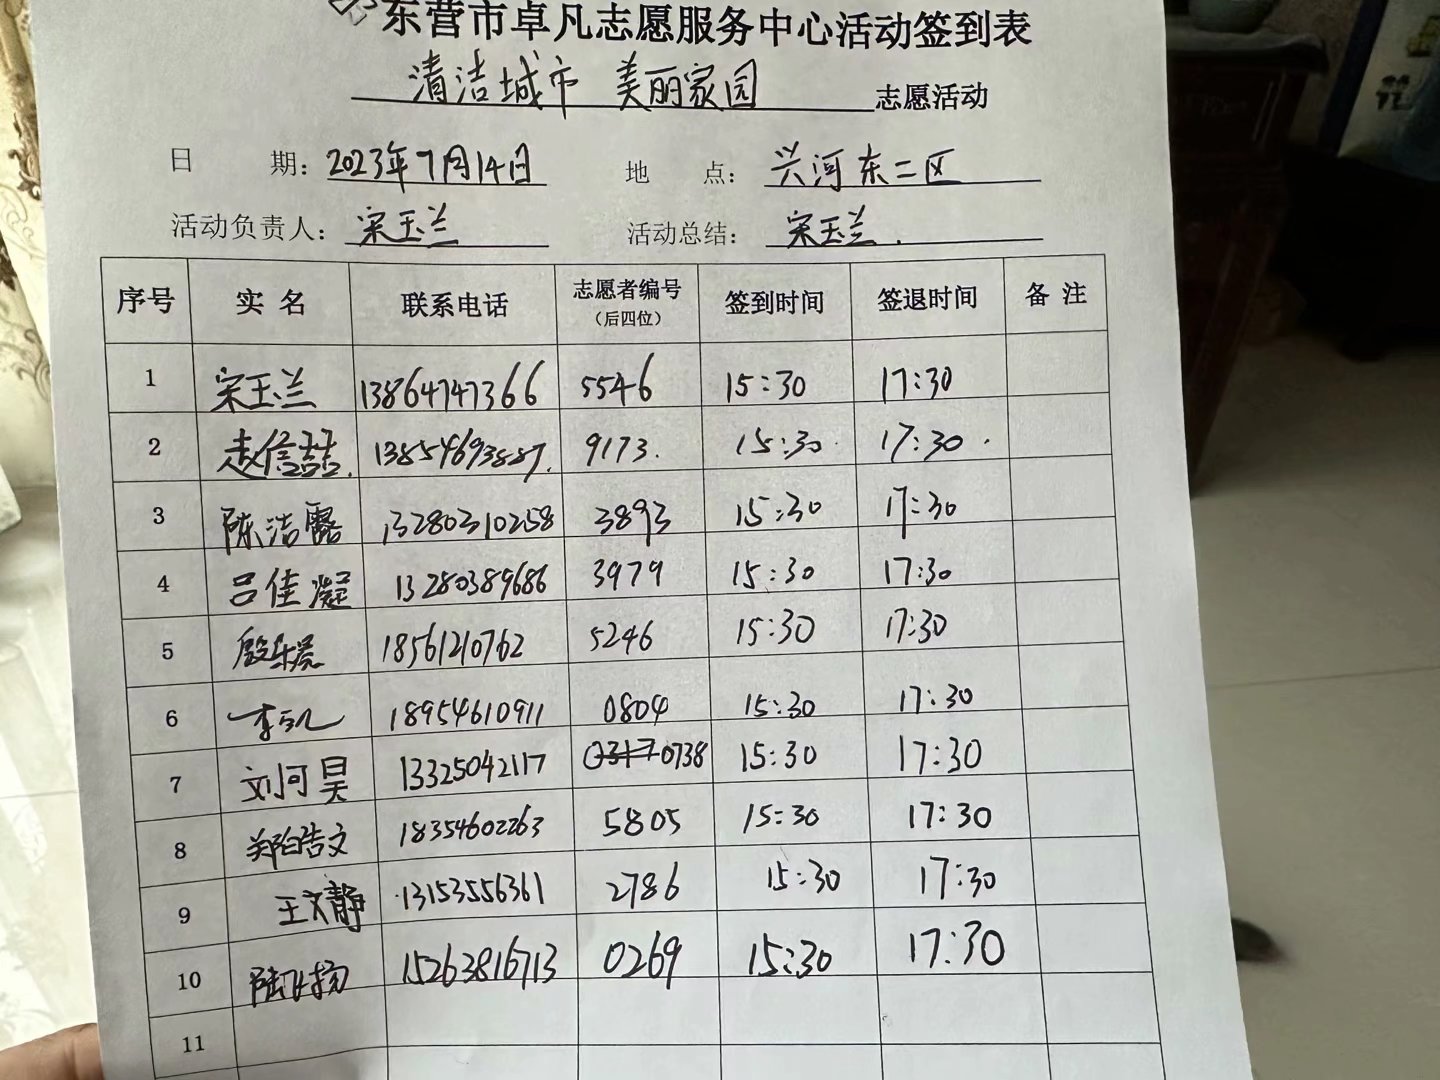 东营市卓凡志愿服务中心活动签到表
清洁城市 美丽家园 志愿活动
日 期：2023年7月14日 地 点：兴河东二区
活动负责人：宋玉兰 活动总结：宋玉兰.
序号 实 名 联系电话 志愿者编号（后四位） 签到时间 签退时间 备 注
1 宋玉兰 13864747366 5546 15:30 17:30
2 赵信喆 13854693887. 9173. 15:30. 17:30.
3 陈洁露 13280310258 3893 15:30 17:30
4 吕佳凝 13280389686 3979 15:30 17:30
5 殷 18561210762 5246 15:30 17:30
6 李凯 18954610911 0804 15:30 17:30
7 刘何昊 13325042117 0738 15:30 17:30
8 郑皓文 18354602263 5805 15:30 17:30
9 王文静 13153556361 2786 15:30 17:30
10 陆飞扬 15263816713 0269 15:30 17:30
11